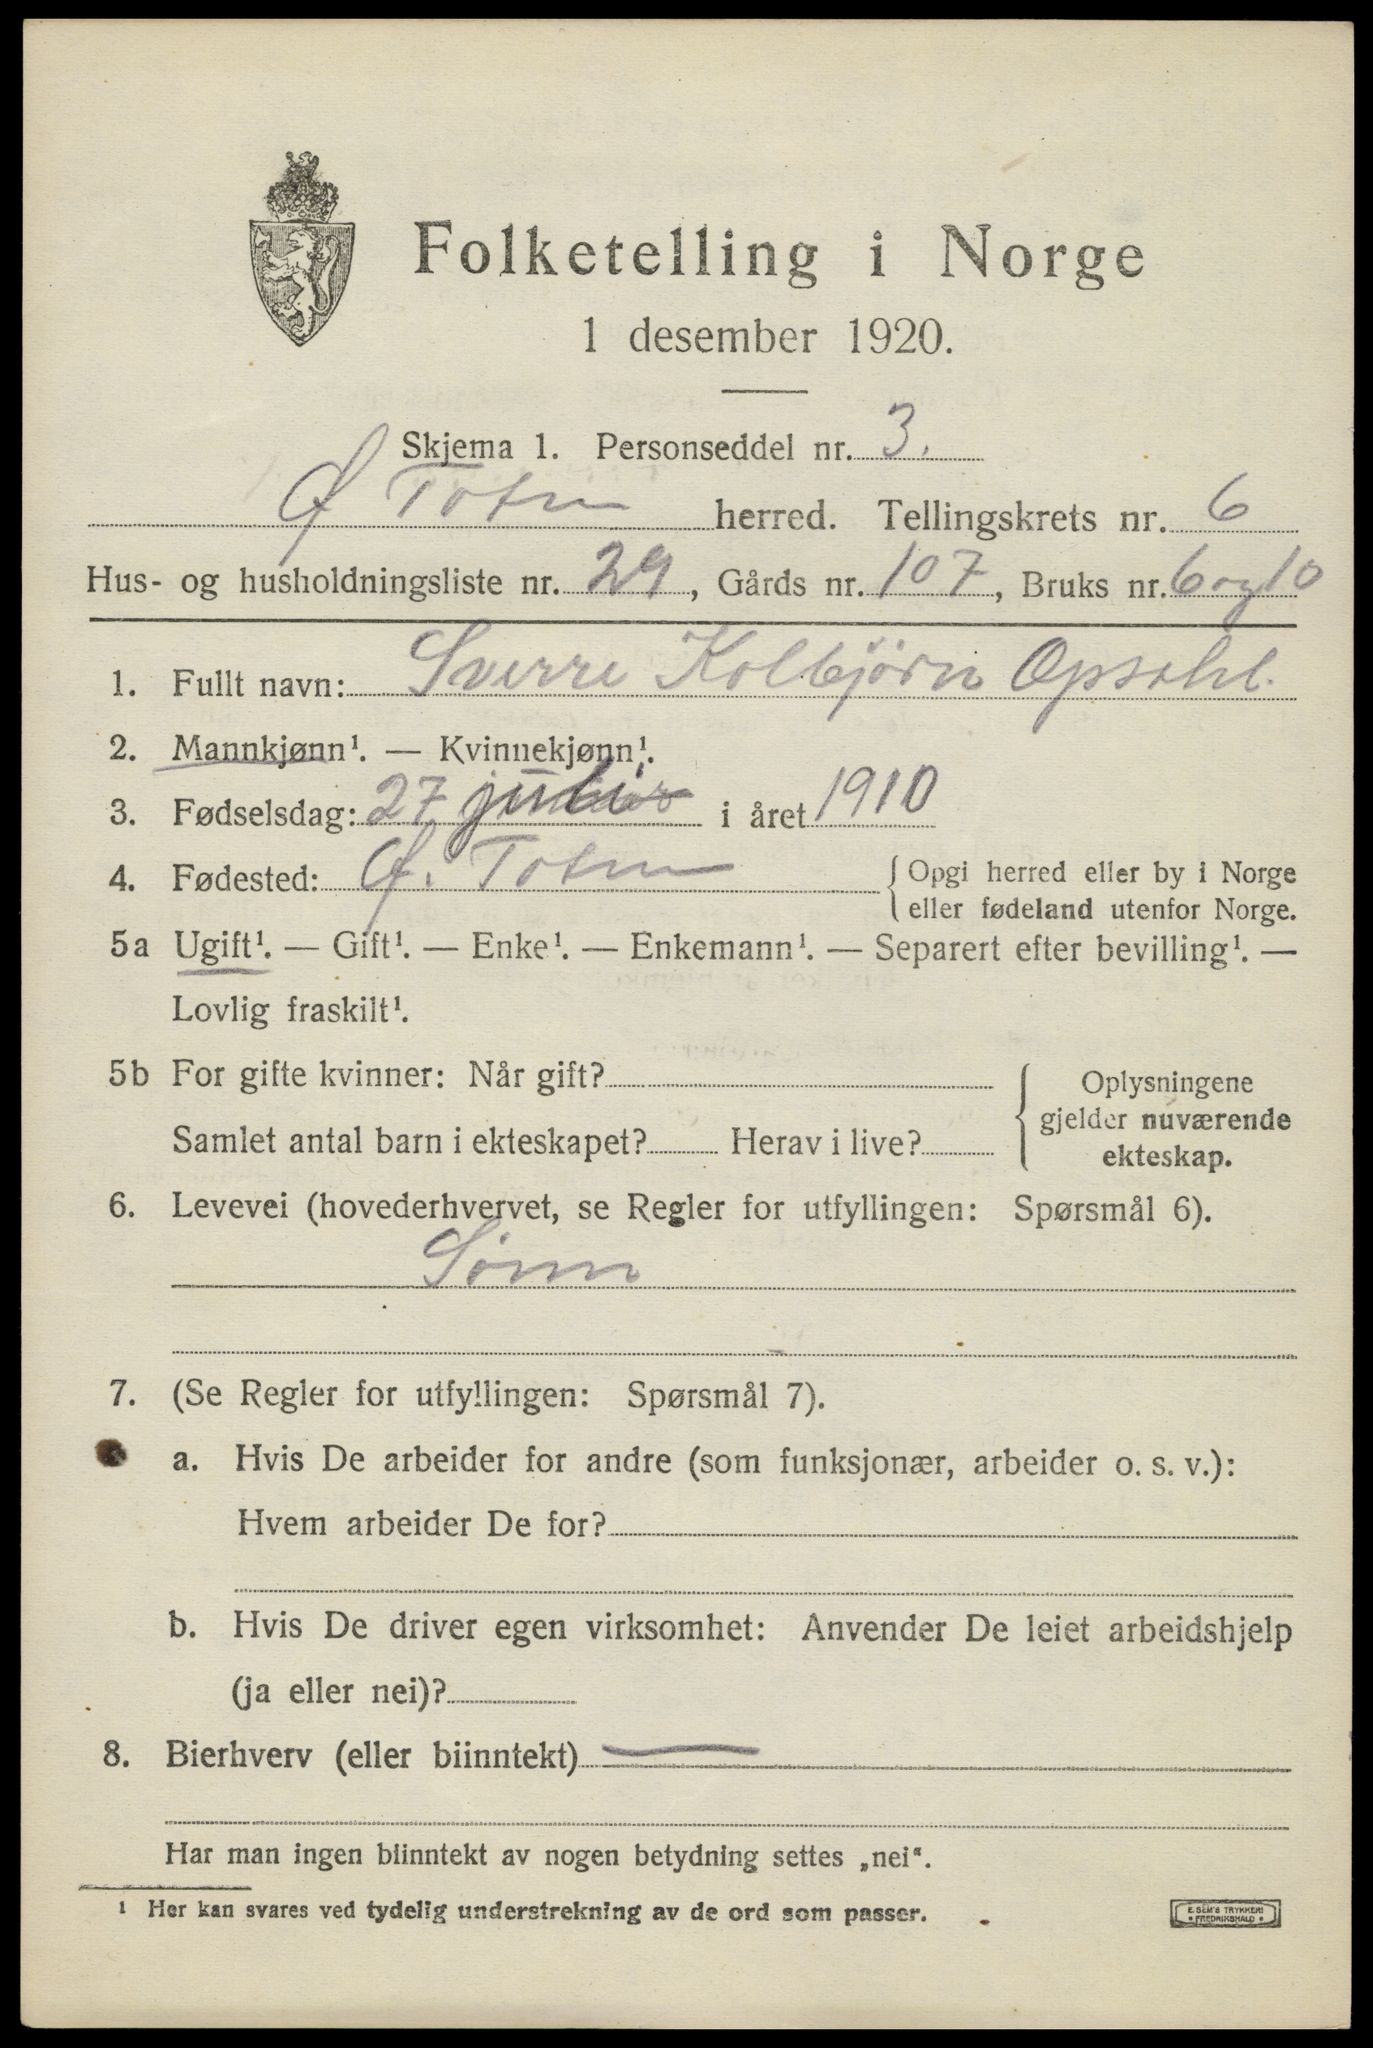 Folketelling i Norge
1 desember 1920.
Skjema 1. Personseddel nr. 3.
Ø Toten herred. Tellingskrets nr. 6
Hus- og husholdningsliste nr. 29, Gårds nr. 107, Bruks nr. 6 og 10
1. Fullt navn: Sverre Kolbjørn Opsahl.
2. Mannkjønn¹. — Kvinnekjønn¹.
3. Fødselsdag: 27 juli i året 1910
4. Fødested: Ø. Toten {Opgi herred eller by i Norge
eller fødeland utenfor Norge.
5a Ugift¹. — Gift¹. — Enke¹. — Enkemann¹. — Separert efter bevilling¹. —
Lovlig fraskilt¹.
5b For gifte kvinner: Når gift?
Samlet antal barn i ekteskapet? Herav i live?
{Oplysningene
gjelder nuværende
ekteskap.
6. Levevei (hovederhvervet, se Regler for utfyllingen: Spørsmål 6).
Sønn
7. (Se Regler for utfyllingen: Spørsmål 7).
a. Hvis De arbeider for andre (som funksjonær, arbeider o. s. v.):
Hvem arbeider De for?
b. Hvis De driver egen virksomhet: Anvender De leiet arbeidshjelp
(ja eller nei)?
8. Bierhverv (eller biinntekt) —
Har man ingen biinntekt av nogen betydning settes „nei“.
¹ Her kan svares ved tydelig understrekning av de ord som passer.
E. SEM'S TRYKKERI
• FREDRIKSHALD •